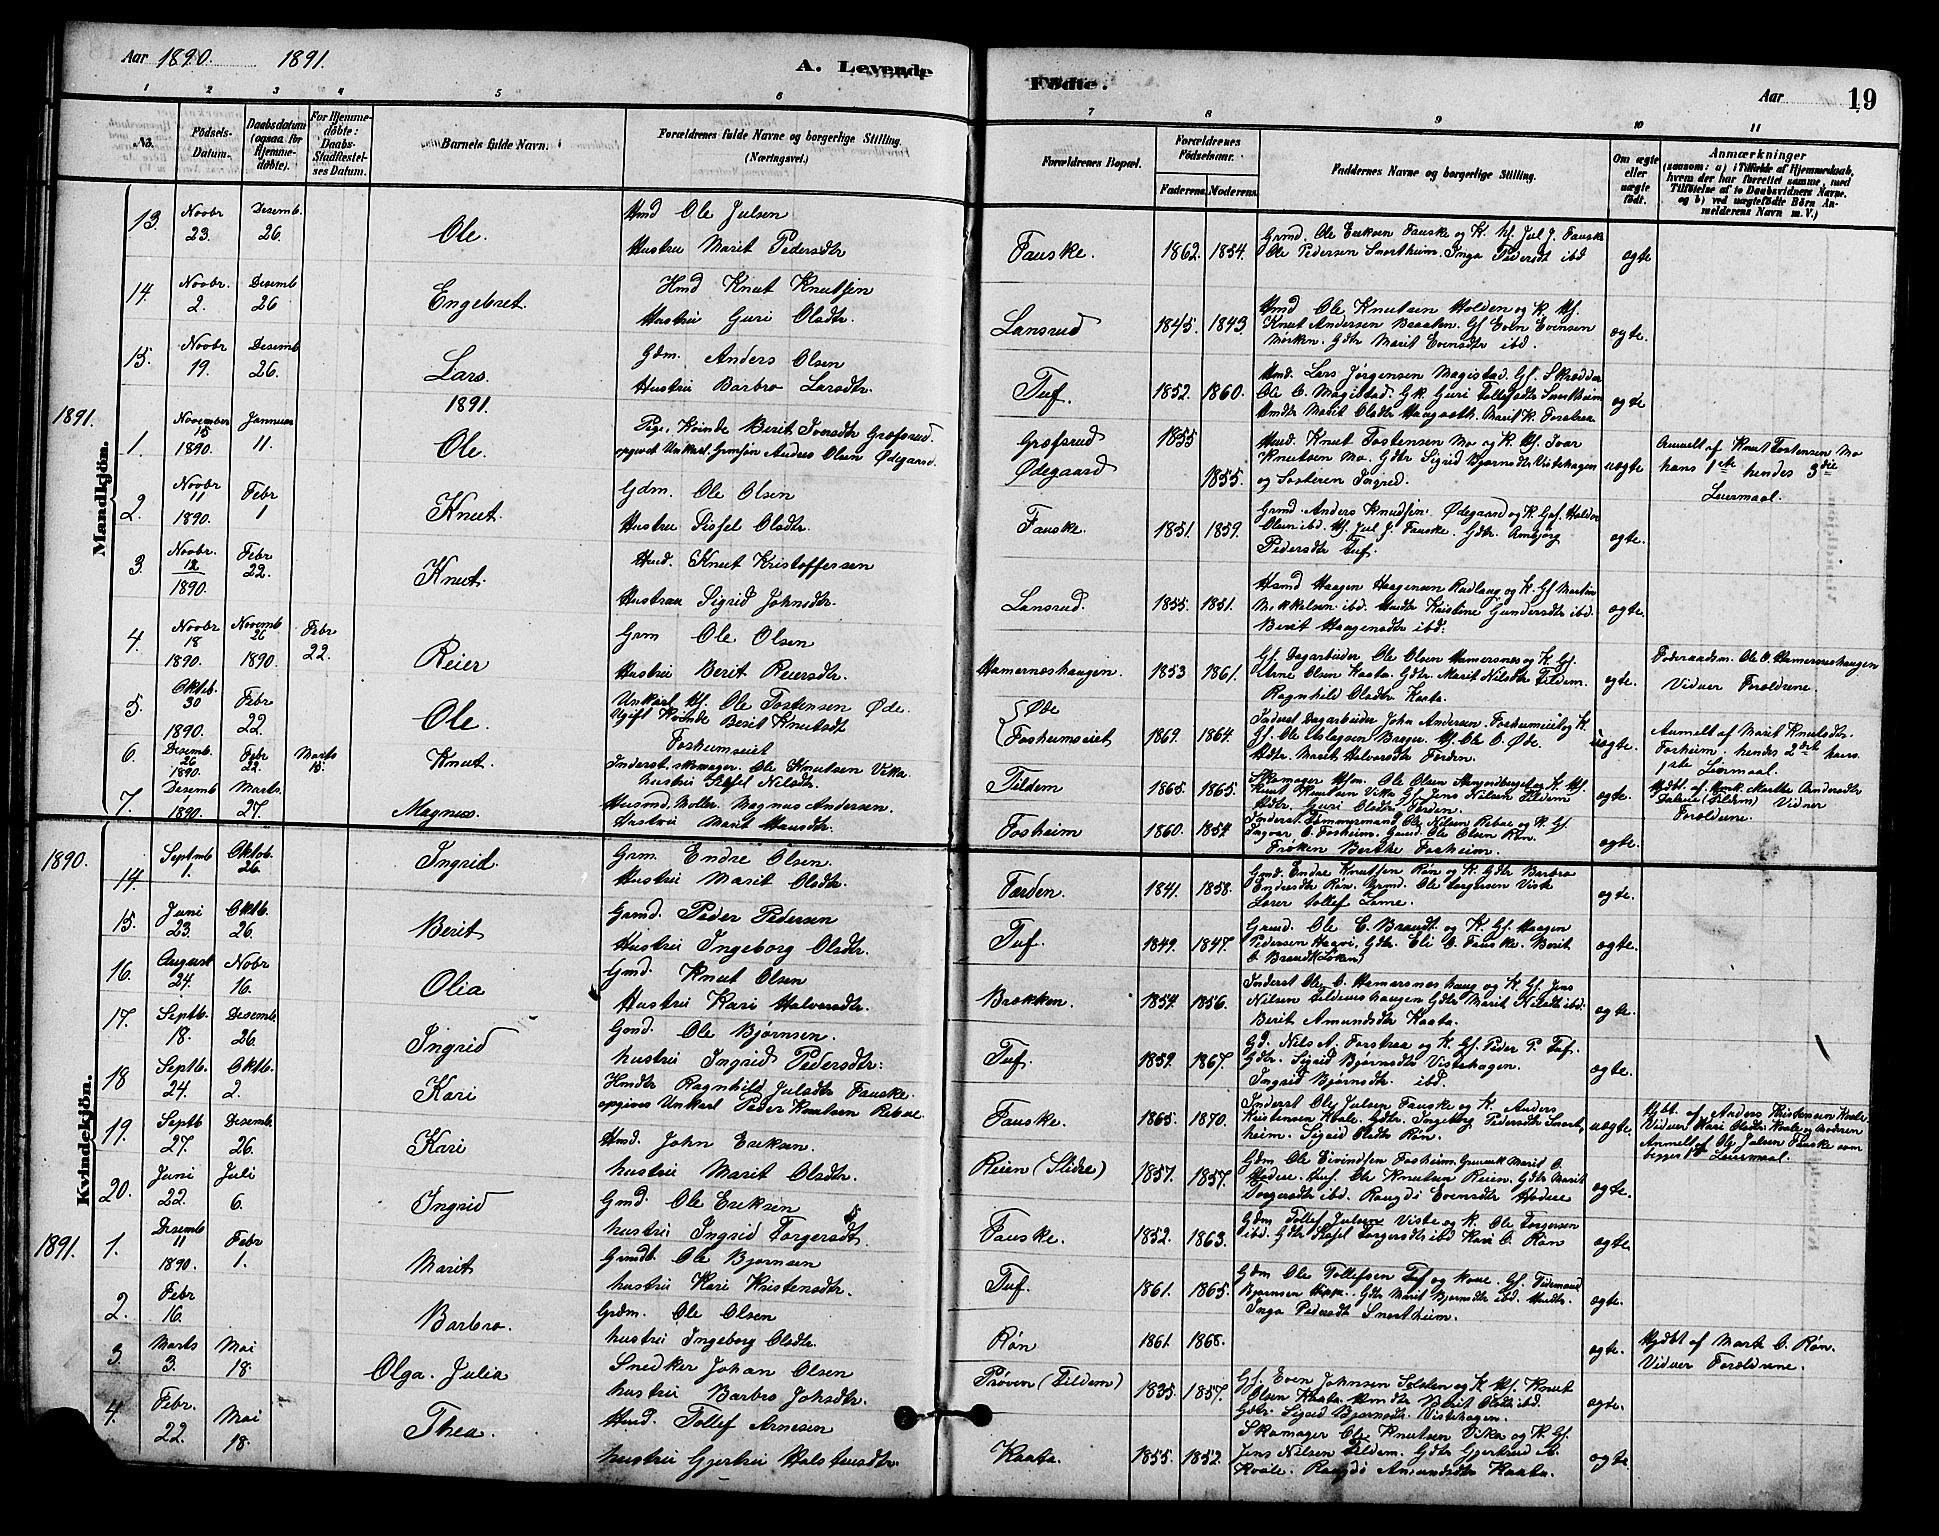 Aar 1890. 1891. A. Levende Fødte. Aar 19
1 2 3 4 5 6 7 8 9 10 11
No. Fødsels-Datum. Daabsdatum (ogsaa for Hjemmedøbte). For Hjemmedøbte: Daabs-Stadfæstelses Datum. Barnets fulde Navn. Forældrenes fulde Navne og borgerlige Stilling. (Næringsvei.) Forældrenes Bopæl. Forældrenes Fødselsaar. Faderens. Moderens. Faddernes Navne og borgerlige Stilling. Om ægte eller uægte født. Anmærkninger (saasom: a) i Tilfælde af Hjemmedaab, hvem der har forrettet samme, med Tilføielse af to Daabsvidners Navne, og b) ved uægtefødte Børn Anmelderens Navn m. V.)
Mandkjøn.
13. Novbr 23. Desemb. 26. Ole. Hmd Ole Julsen Hustru Marit Pedersdtr Fauske. 1862. 1854. Grmd. Ole Eriksen Fauske og K. Uf. Jul J. Fauske Ole Pedersen Snortheim. Inga Pedersdt ibd ægte
14. Novbr. 2. Desemb 26 Engebret Hmd Knut Knutsen Hustru Guri Olsdtr. Lansrud 1845. 1843. Hmd Ole Knutsen Holden og K. Uf. Knut Andersen Braaten. Gf Even Evensen Mørken. Gdtr Marit Evensdtr ibd. ægte.
15. Novbr 19. Desemb 26. Lars. Gdm. Anders Olsen Hustru Barbro Larsdtr. Tuf. 1852. 1860. Hmd. Lars Jørgensen Magistad. Gf. Skrædder Ole O. Magistad. Gk. Guri Tollefsdtr Snortheim Hmdtr Marit Olsdtr Haugseth. Marit K. Forstraa ægte
1891. 1891.
1. November 15 1890. Januar 11. Ole. Pige, Kvinde Berit Ivarsdtr Græfsrud. opgivet Unkarl, Grmsøn Anders Olsen Ødegaard. Græfsrud Ødegaard 1855 1855. Hmd. Knut Tostensen Mo og K. Uf. Ivar Knutsen Mo. Gdtr Sigrid Bjørnsdtr Vistehagen og Søsteren Ingrid. uægte Anmelt af Knut Tostensen Mo hans 1ste hendes 3die Leiermaal.
2. Novbr 11 1890. Febr 1 Knut. Gdm. Ole Olsen Hustru Sissel Olsdtr. Fauske. 1851. 1859. Grmd. Anders Knudsen Ødegaard og K. Gmf. Haldor Olsen ibd. Uf. Jul J. Fauske. Gdtr. Ambjørg Pedersdtr Tuf. ægte.
3. Novbr. 12 1890. Febr 22. Knut. Hmd. Knut Kristoffersen Hustrua Sigrid Johnsdtr. Lansrud. 1855. 1851. Hsmd Haagen Haagensen Rudlang og K. Gf Martin Mikkelsen ibd. Hmdtr Kristine Gundersdtr ibd. Berit Haagensdtr ibd. ægte.
4. Novbr 18 1890. Novemb 26 1890. Febr 22. Reier Grm Ole Olsen Hustru Berit Reiersdtr. Hamersneshaugen. 1853 1861. Gf. Dagarbeider Ole Olsen Hamersnes og K. Gf. Arne Olsen Kaata. Gdtr. Marit Nilsdtr Tildem. Ragnhild Olsdtr Kaata. ægte. Føderaadsm. Ole O. Hamersneshaugen Vidner Forældrene.
5. Oktob. 30 1890. Febr 22. Ole. Unkarl Uf. Ole Tostensen Øde. Ugift Kvinde Berit Knutsdt Fosheimseiet Øde Fosheimseiet 1869. 1864. Inderst Dagarbeider John Andersen Fosheimeiet og K. Gf. Ole Aslagsen Berger. Uf. Ole O. Øde. Hdtr. Marit Halvorsdtr Førdn. uægte. Anmelt af Marit Knutsdtr. Fosheim. hendes 2det hans 1ste Leiermaal.
6. Desemb. 26 1890. Febr 22. Marts 15. Knut. Inderst skomager. Ole Knutsen Vika hustru Sissel Nilsdtr. Tildem 1865. 1865. Skomager Ole Olsen og K. Uf. Knut Knutsen Vika Gf. Jens Nilsen Tildem Hdtr. Guri Olsdtr Førden. ægte. Hjdbt. af Marthe Andersdtr (Tildem) Vidner Forældrene.
7. Desemb 1890. Marts. 27. Magnus. Husmd. Møller. Magnus Andersen. Hustru Marit Hansdtr. Fosheim 1860. 1854 Inderst Tømmermand Ole Nilsen Rebne og K. Gf. Ingvar O. Fosheim. Grmd. Ole Olsen Røn. Frøken Berthe Fosheim. ægte.
Kvindekjøn.
1890. 14. Septmb 1. Oktob. 26. Ingrid. Grm. Endre Olsen. Hustru Marit Olsdtr. Førden. 1841. 1858. Gmd. Endre Knutsen Røn og K. Gdtr Barbro Endresdtr Røn. Grmd. Ole Torgersen Viste Lærer Tollef Lome. ægte.
15. Juni 23. Oktb. 26. Berit Grmd. Peder Pedersen Hustru Ingeborg Olsdtr. Tuf. 1849. 1847. Grmd. Ole O. Brandt og K. Gf. Haagen Pedersen Haavi. Gdtr. Eli O. Fauske. Berit O. Brandt (Løken) ægte.
16. August 24. Nobr 16. Olia Gmd. Knut Olsen Hustru Kari Halvorsdtr. Brækken. 1854. 1856. Inderst Ole O. Hamersneshaug og K. Gf. Jens Nilsen Tildemshaugen Gdtr Marit Nilsdtr ibd. Berit Amundsdtr Kaata. ægte.
17. Septb. 18. Desemb. 26. Ingrid Gmd. Ole Bjørnsen. hustru Ingrid Pedersdtr. Tuf. 1859. 1867. Gd. Nils A. Forstraa og K. Gf. Peder P. Tuf. Gdtr. Sigrid Bjørnsdtr Vistehagen. Ingrid Bjørnsdtr. ibd. ægte.
18 Septb. 24. Oktb. 2. Kari Hmdtr Ragnhild Julsdtr Fauske. opgives Unkarl Peder Knutsen Rebne. Fauske. 1865. 1870. Inderst Ole Julsen Fauske og K. Anders Kristensen Kvale. Gdtr. Ingeborg Pedersdtr Snortheim. Sigrid Olsdtr Røn. uægte. Hjdbt. af Anders Kristensen Kvale Vidner Kari Olsdtr Kvale og Moderen Anmelt af Ole Julsen Fauske som begges 1st Leiermaal.
19. Septb 27. Desemb. 26. Kari Hmd. John Eriksen. hustru Marit Olsdtr. Reien (Slidre) 1857. 1857. Gdm Ole Eivindsen Fosheim. Marit O. Hedere. Ole Knutsen Reien. Gdtr Marit Torgersdtr ibd. Rangdi Evensdtr Hedere ægte.
20. Juni 22. Juli 6. Ingrid Gmd. Ole Eriksen hustru Ingrid Torgersdt. Fauske. 1852. 1863. Gdm Tollef Julsen Viste og K. Ole Torgersen ibd. Gdtr Sissel Torgersdtr ibd Kari O. Røn ægte.
1891. 1. Desemb 11 1890. Febr 1. Marit Grmdt. Ole Bjørnsen hustru Kari Kristensdtr. Tuf. 1861. 1865. Gdm Ole Tollefsen Tuf og kone. Gf. Tidemand Bjørnsen Gdtr Marit Bjørnsdtr ibd. Hmdtr. Inga Pedersdt Snortheim. ægte.
2. Febr 16. Barbro. Grdm. Ole Olsen hustru Ingeborg Olsdtr. Røn 1861. 1868. ægte. Hjdbt af Marit O. Røn. Vidner Forældrene.
3. Marts 3. Mai 18. Olga. Julia Snedker Johan Olsen hustru Barbro Johsdtr. Prøven (Tildem) 1835. 1857. Gf. Even Johnsen Solsten og K. Uf. Knut Olsen Kaata. Hmdtr Berit Olsdtr ibd Gdtr. Sigrid Bjørnsdtr. Vistehagen. ægte.
4. Febr. 22. Mai 18. Thea. Hmd. Tollef Arnesen hustru Gjertru Halstensdtr. Kaata. 1855. 1852. Skomager Ole Knutsen Vika og K. Gf. Jens Nilsen Tildem. Gdtr Gjertrud A. Kvale. Rangdi Amundsdtr Kaata. ægte.